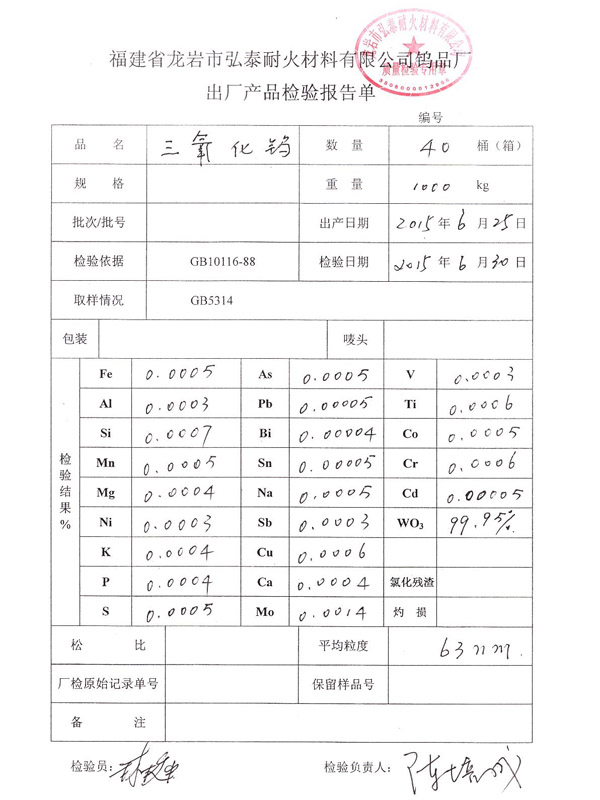 福建省龙岩市弘泰耐火材料有限公司钨品厂
出厂产品检验报告单
龙岩市弘泰耐火材料有限公司
质量检验专用章
编号
品 名 三氧化钨 数 量 40 桶（箱）
规 格 重 量 1000 kg
批次/批号 出产日期 2015年6月25日
检验依据 GB10116-88 检验日期 2015年6月30日
取样情况 GB5314
包装 唛头
检验结果%
Fe 0.0005 As 0.0005 V 0.0003
Al 0.0003 Pb 0.00005 Ti 0.0006
Si 0.0007 Bi 0.00004 Co 0.0005
Mn 0.0005 Sn 0.00005 Cr 0.0006
Mg 0.0004 Na 0.0005 Cd 0.00005
Ni 0.0003 Sb 0.0003 WO₃ 99.95%
K 0.0004 Cu 0.0006
P 0.0004 Ca 0.0004 氯化残渣
S 0.0005 Mo 0.0014 灼 损
松 比 平均粒度 63nm.
厂检原始记录单号 保留样品号
备 注
检验员： 检验负责人：